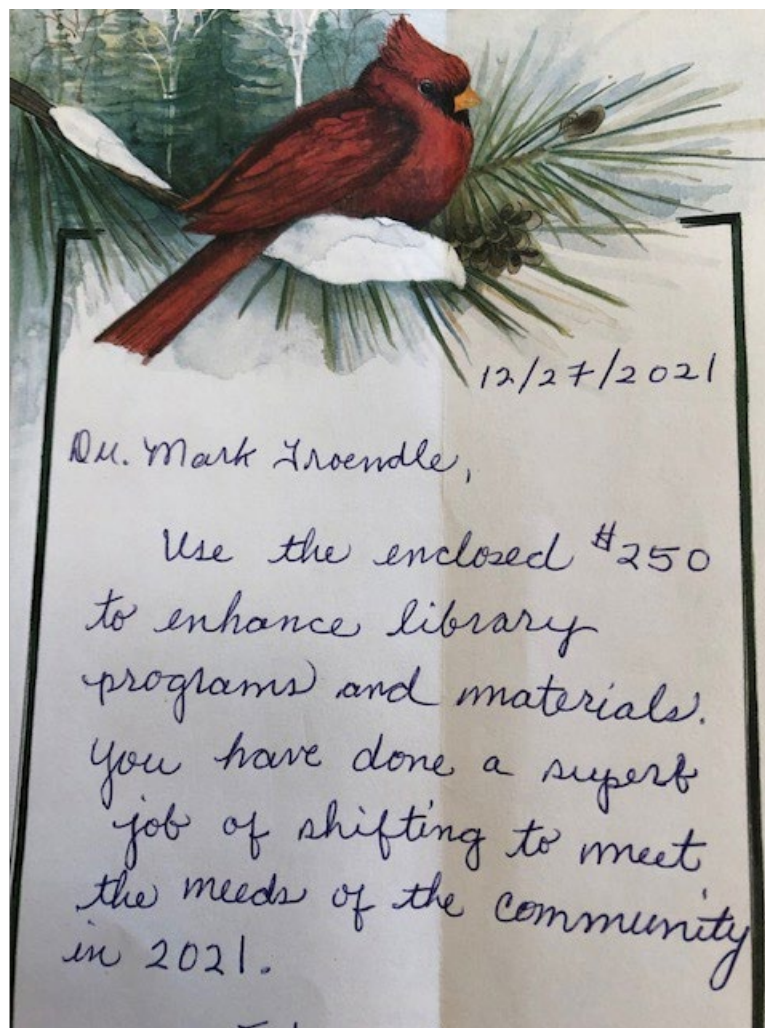 12/27/2021
Dr. Mark Troendle,
Use the enclosed $250
to enhance library
programs and materials.
You have done a superb
job of shifting to meet
the needs of the community
in 2021.